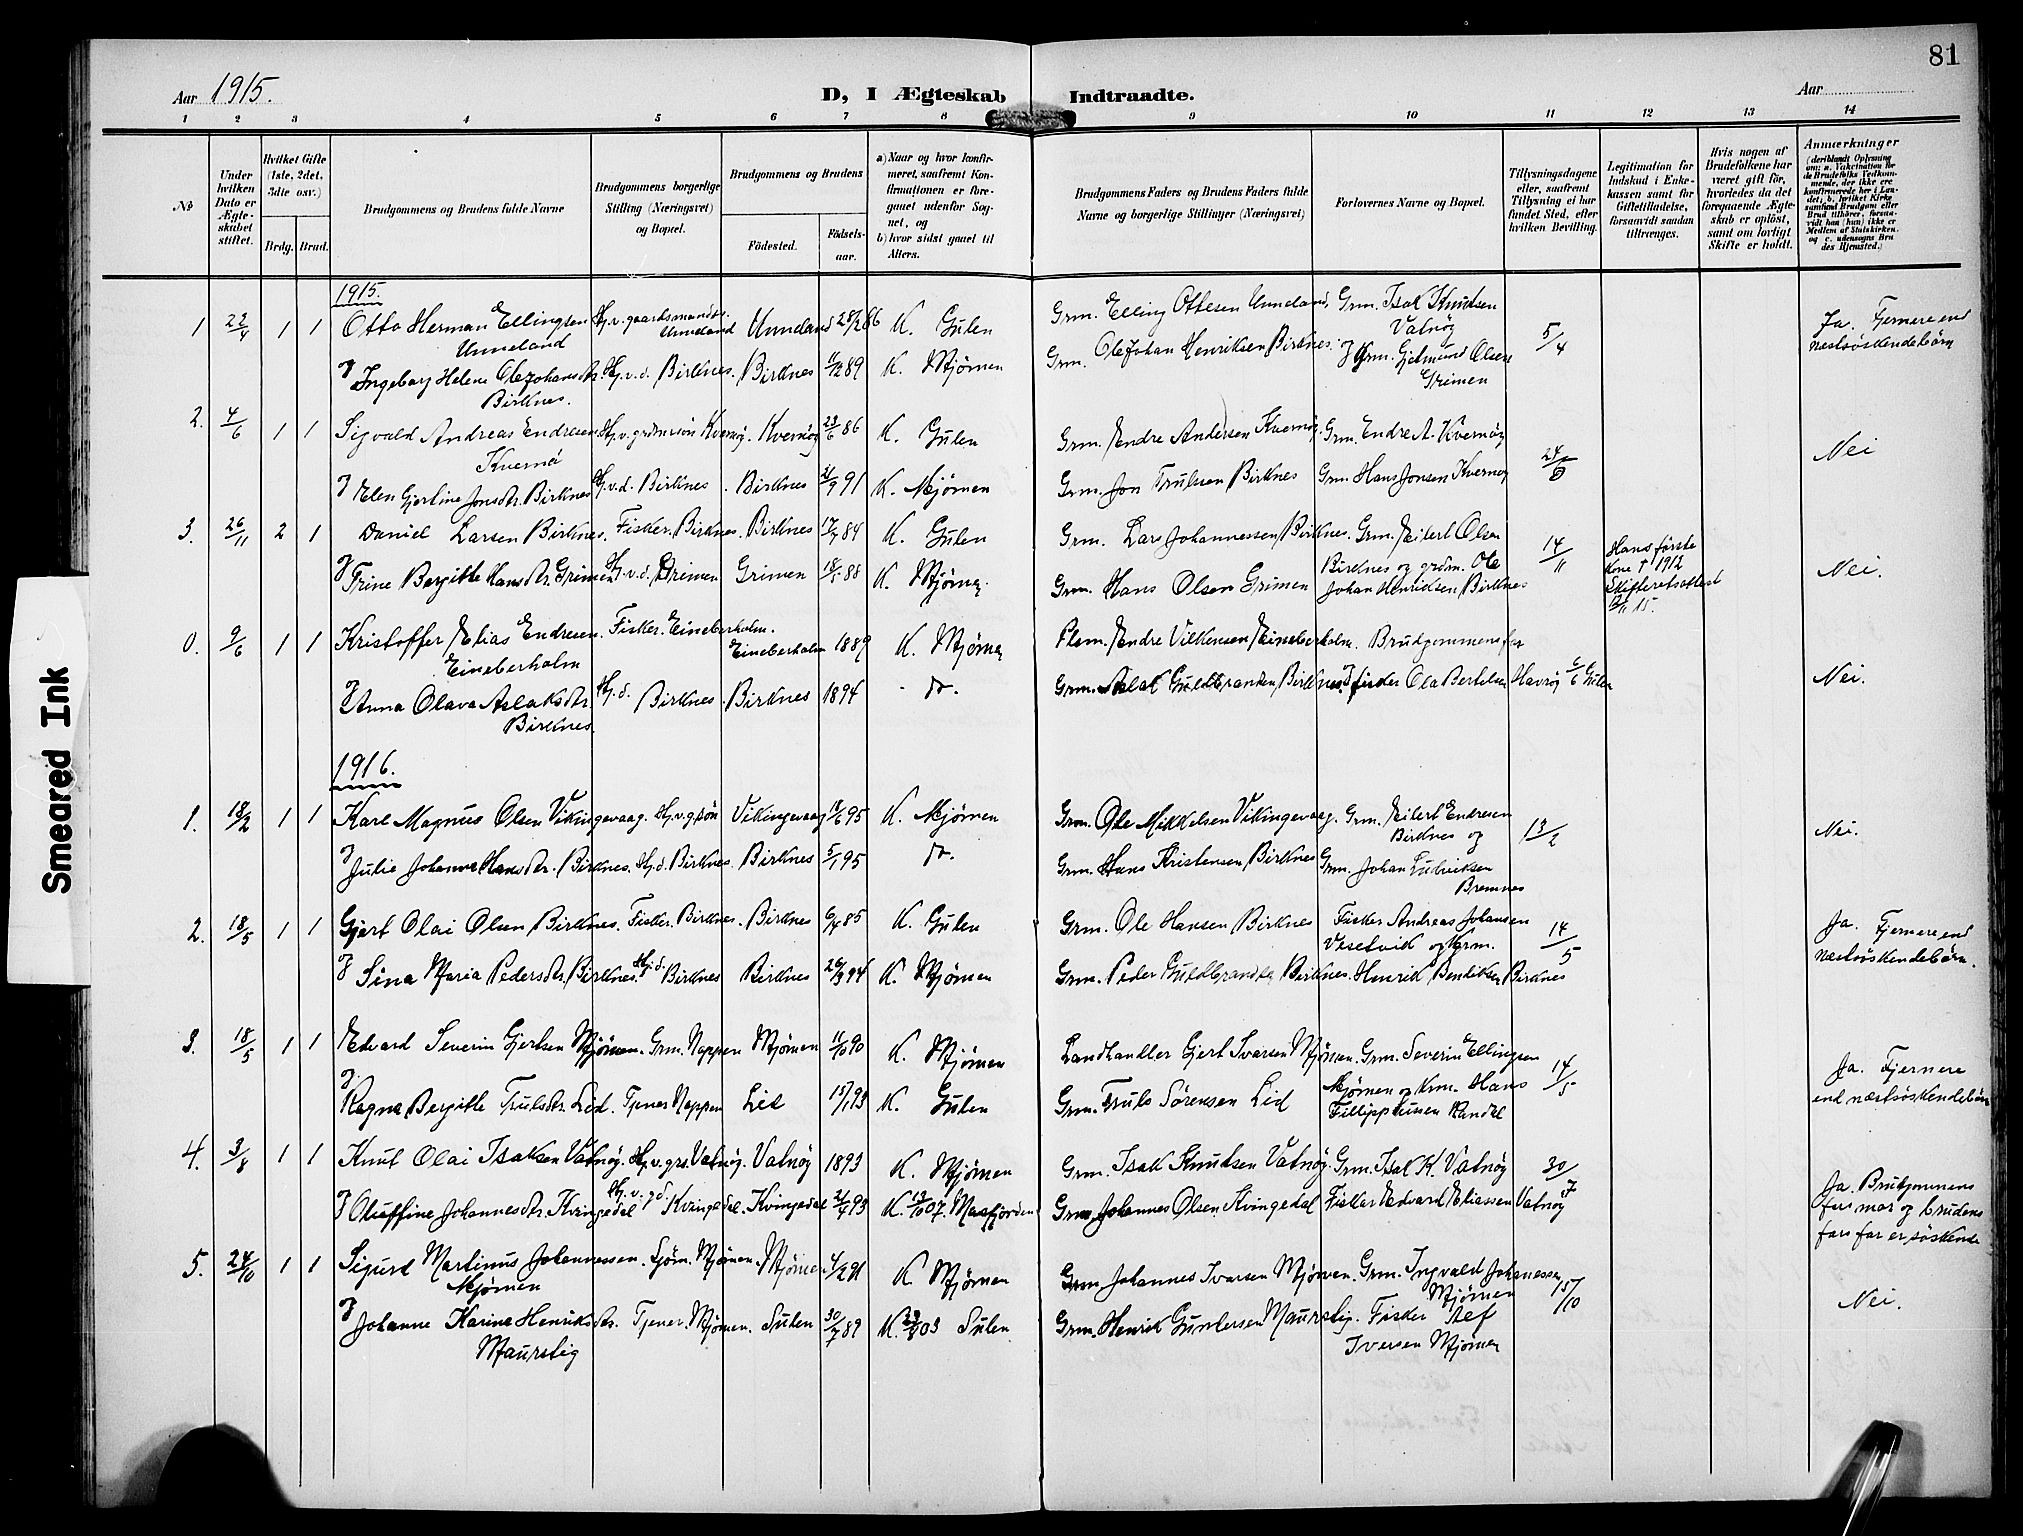 81
Aar 1915.
D, I Ægteskab Indtraadte.
Aar
1 2 3 4 5 6 7 8 9 10 11 12 13 14
No
Under hvilken Dato er Ægteskabet stiftet.
Hvilket Gifte (1ste, 2det, 3die osv.)
Brdg. Brud.
Brudgommens og Brudens fulde Navne
Brudgommens borgerlige Stilling (Næringsvei) og Bopæl.
Brudgommens og Brudens
Fødested. Fødselsaar.
a) Naar og hvor konfirmeret, saafremt Konfirmationen er foregaaet udenfor Sognet, og
b) hvor sidst gaaet til Alters.
Brudgommens Faders og Brudens Faders fulde Navne og borgerlige Stillinger (Næringsvei)
Forlovernes Navne og Bopæl.
Tillysningsdagene eller, saafremt Tillysning ei har fundet Sted, efter hvilken Bevilling.
Legitimation for Indskud i Enkekassen samt for Giftetilladelse, forsaavidt saadan tiltrænges.
Hvis nogen af Brudefolkene har været gift før, hvorledes da det foregaaende Ægteskab er opløst, samt om lovligt Skifte er holdt.
Anmærkninger (deriblandt Oplysning om: a. Vakcination for de Brudefolks Vedkommende, der ikke ere konfirmerede her i Landet, b. hvilket Kirkesamfund Brudgom eller Brud tilhører, forsaavidt han (hun) ikke er Medlem af Statskirken, og c. udensogns Brudes Hjemsted.)
1915.
1 22/4 1 1 Otto Herman Ellingsen Unneland Hj.v. gaardmands. Unneland Unneland 86 K. Gulen Grm. Elling Ottesen Unneland. Grm. Isak Knudsen Vatnøy 5/4 Ja. Fjernere end næstsøskendebørn
Ingeborg Helene Olejohansdtr. Birknes. Hj.v.d. Birknes. Birknes 11/12 89 K. Mjømen Grm. Ole Johan Henriksen Birknes. Grm. Gjetmund Olsen Grimen
2. 4/6 1 1 Sigvald Andreas Endresen Kvernø Hj.v. Kvernøy. Kvernøy 23/6 86 K. Gulen Grm. Endre Andersen Kvernøy. Grm. Endre A. Kvernøy Nei
Elen Gjertine Jonsdtr. Birknes Hj.v.d. Birknes. Birknes 91 K. Mjømen Grm. Jon Trulsen Birknes Grm Hans Jonsen Kvernøy
3. 26/11 2 1 Daniel Larsen Birknes. Fisker. Birknes. Birknes 84 K. Gulen Grm. Lars Johannessen Birknes. Grm. Eilert Olsen Birknes og grdm. Ole Johan Henriksen Birknes 14/11 Hans første kone † 1912 Skifteretsattest 12/11 15. Nei.
Trine Bergitte Hansdtr. Grimen Hj.v.d. Grimen Grimen 88 K. Mjømen Grm. Hans Olsen Grimen
0. 9/6 1 1 Kristoffer Elias Endresen Eineberholm Fisker. Eineberholm. Eineberholm 1889 K. Mjømen Endre Vilkensen Eineberholm. Brudgommens far 6/6 Gulen Nei.
Anna Olava Aslaksdtr. Birknes. Hj.d. Birknes. Birknes 1894 do. Grm. Aslak Guldbrandsen, Birknes Fisker Ola Bertelsen Havrøy
1916.
1. 18/2 1 1 Karl Magnus Olsen Vikingevaag. Hj.v.g.søn Vikingevaag 95 K. Mjømen Grm. Ole Mikkelsen Vikingevaag. Grm. Eilert Endresen Birknes og 13/2 Nei.
Julie Johanna Hansdtr. Birknes. Hj.d. Birknes. Birknes 5/1 95 do. Grm. Hans Kristensen, Birknes Grm. Johan Ludviksen Bremnes
2. 18/5 1 1 Gjert Olai Olsen Birknes. Fisker. Birknes. Birknes 6/4 85 K. Gulen Grm. Ole Hansen Birknes Fisker Andreas Johansen og Krm. 14/5 Ja. Fjernere end næstsøskendebørn.
Sina Maria Pedersdtr. Birknes. Hj.d. Birknes Birknes 26/3 94 K. Mjømen Grm. Peder Guldbrandsen Birknes. Henrik Bendiksen Birknes
3. 18/5 1 1 Edvard Severin Gjertsen Mjømen. Grm. Nappen Mjømen 11/10 90 K. Mjømen Landhandler Gjert Ivarsen Mjømen. Grm. Severin Ellingsen Mjømen og Krm. Hans Fillipphusen Randal 14/5 Ja. Fjernere end næstsøskendebørn
Ragna Bergitte Trulsdtr. Lid. Tjener Nappen Lid 93 K. Gulen Grm. Truls Sørensen Lid
4. 3/8 1 1 Knut Olai Isaksen Vatnøy. Hj.v.grs. Vatnøy. Vatnøy 1893 K. Mjømen Grm. Isak Knudsen Vatnøy. Grm. Isak K. Vatnøy 30/7 Ja. Brudgommens farmor og brudens farfar er søskende
Oluffine Johannesdtr. Kvingedal Hj.v.gd. Kvingedal. Kvingedal 93 K. 13/10 07. Masfjorden Grm Johannes Olsen Kvingedal Fisker Edvard Eliassen Vatnøy
5. 24/10 1 1 Sigurd Martinus Johannessen. Mjømen Sjøm. Mjømen. Mjømen 4/2 91 K. Mjømen Grm Johannes Ivarsen Mjømen. Grm. Ingvald Johanessen Mjømen 15/10 Nei.
Johanne Karine Henriksdtr. Maurstig Tjener. Mjømen. Sulen 30/7 89 K. 03 Sulen Grm. Henrik Guntersen Maurstig. Fisker Iversen Mjømen
Smeared Ink